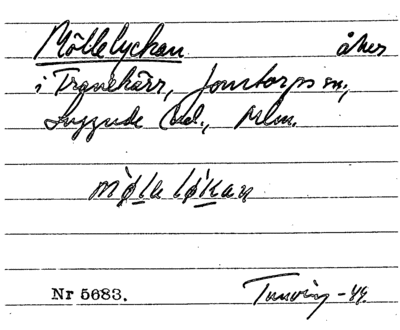 Möllelyckan åker
i Tranekärr, Jonstorps sn.,
Luggude hd., Mlm.
mø̀lle løkaɳ
Nr 5683.
Tuneving -44.